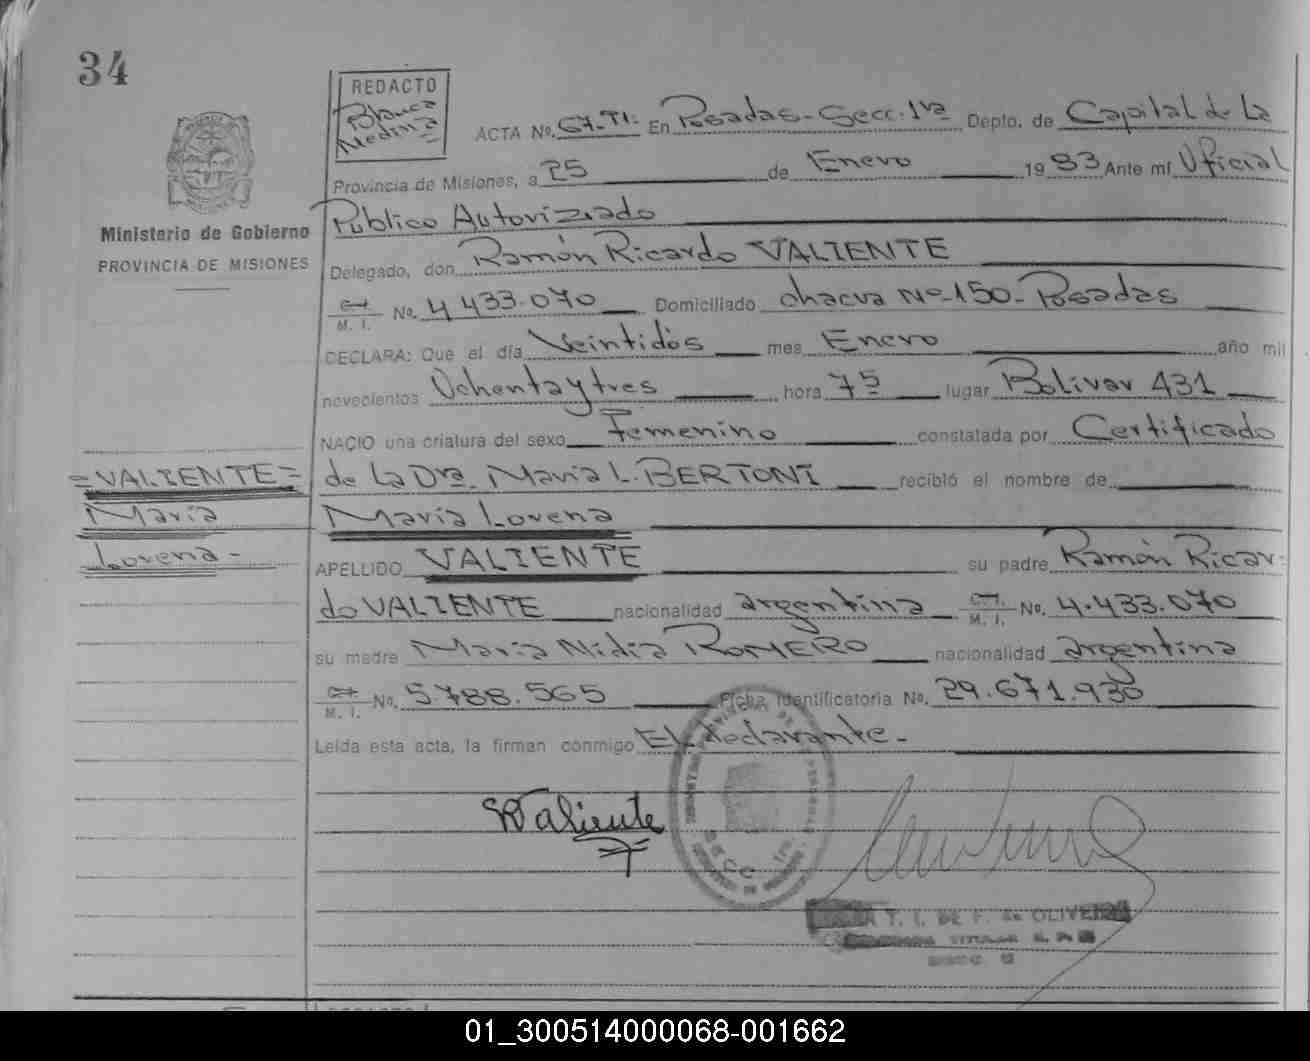 34
REDACTO
Blanca
Medina
ACTA No. 67-TI- En Posadas-Secc. 1ra Depto. de Capital de La
Provincia de Misiones, a 25 de Enero 1983 Ante mí Oficial
Público Autorizado
Ministerio de Gobierno
PROVINCIA DE MISIONES
Delegado, don Ramón Ricardo VALIENTE
M. I. No. 4 433.070 Domiciliado chacra No-150-Posadas
DECLARA: Que el día Veintidós mes Enero año mil
novecientos Ochenta y tres hora 7 5 lugar Bolívar 431
NACIO una criatura del sexo Femenino constatada por Certificado
=VALIENTE= de La Dra. María L. BERTONI recibió el nombre de
María María Lorena
Lorena-
APELLIDO VALIENTE su padre Ramón Ricar-
do VALIENTE nacionalidad argentina M. I. No. 4.433.070
su madre María Nidia ROMERO nacionalidad argentina
M. I. No. 5.788.565 Ficha Identificatoria No. 29.671.930
Leída esta acta, la firman conmigo El declarante.-
RValiente
SECC. 1ra.
T. I. DE F. de OLIVEIRA
TITULAR
01_300514000068-001662